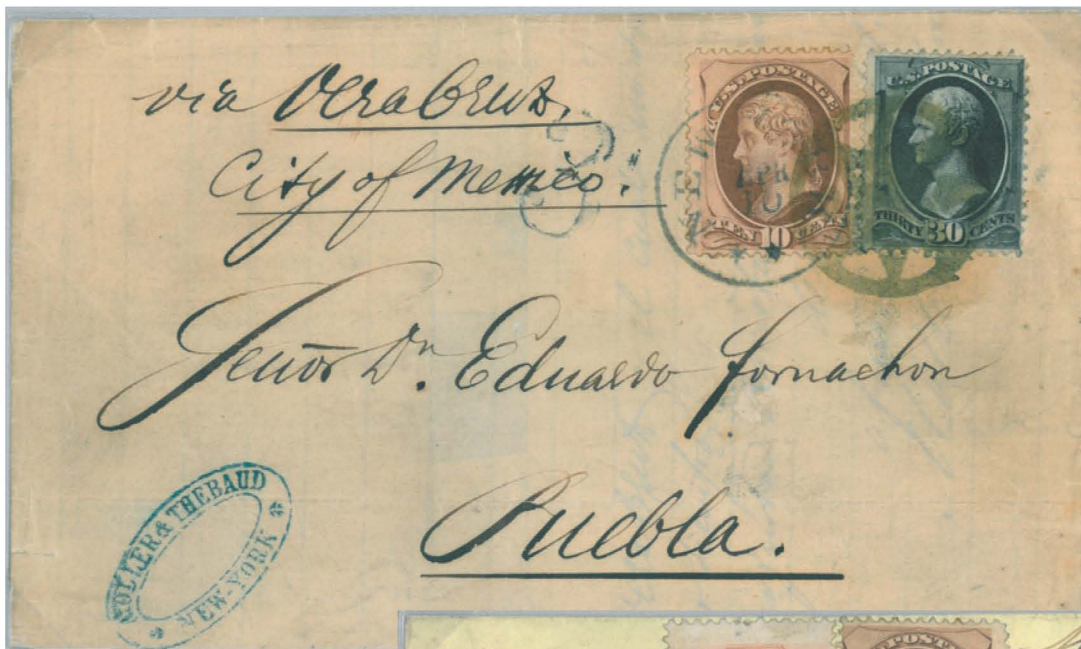 via Vera Cruz.
City of Mexico.
U.S. POSTAGE
TEN 10 CENTS
U.S. POSTAGE
THIRTY 30 CENTS
NEW
APR
10
Señor Dn. Eduardo Fornachon
Puebla.
MOLLER & THEBAUD
NEW-YORK
POSTAGE